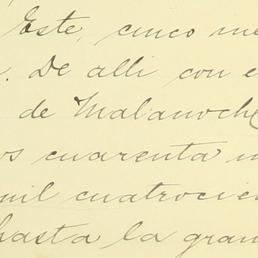 Este, cinco me
. De alli con e
de Malanoche
os cuarenta m
mil cuatrocie
hasta la gran